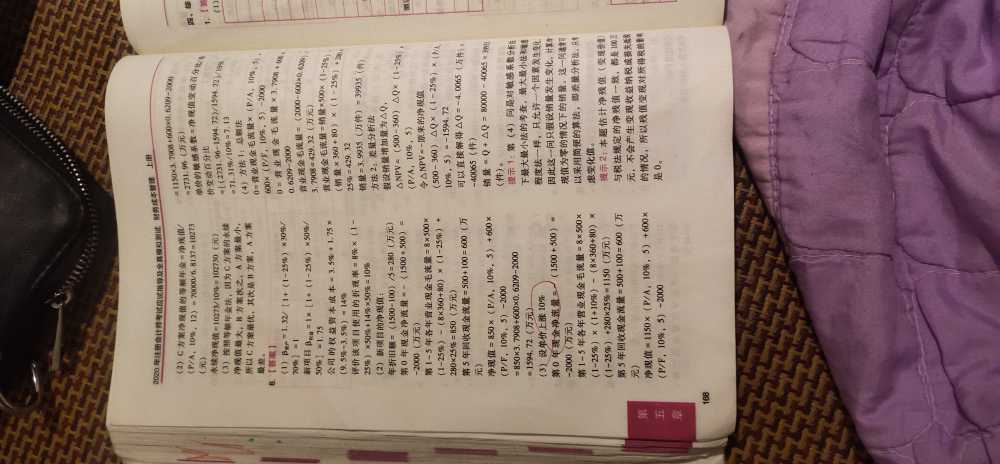 2020年注册会计师考试应试指导及全真模拟测试 财务成本管理 上册
(2) C方案净现值的等额年金=净现值/
(P/A, 10%, 12) =70000/6.8137=10273
(元)
永续净现值=10273/10%=102730 (元)
(3) 按照等额年金法,因为C方案的永续
净现值最大,B方案次之,A方案最小,
所以C方案最优,其次是B方案,A方案
最差。
8. 【答案】
(1) β资产=1.32/ [1+ (1-25%) ×30%/
70%] =1
新项目β权益=1× [1+ (1-25%) ×50%/
50%] =1.75
公司的权益资本成本=3.5%+1.75×
(9.5%-3.5%) =14%
评价该项目使用的折现率=8%× (1-
25%) ×50%+14%×50%=10%
(2) 新项目的净现值:
年折旧额= (1500-100) /5=280 (万元)
第0年现金净流量=- (1500+500) =
-2000 (万元)
第1~5年各年营业现金毛流量=8×500×
(1-25%) - (8×360+80) × (1-25%) +
280×25%=850 (万元)
第5年回收现金流量=500+100=600 (万
元)
净现值=850× (P/A, 10%, 5) +600×
(P/F, 10%, 5) -2000
=850×3.7908+600×0.6209-2000
=1594.72 (万元)
(3) 设单价上涨10%
第0年现金净流量=- (1500+500) =
-2000 (万元)
第1~5年各年营业现金毛流量=8×500×
(1-25%) × (1+10%) - (8×360+80) ×
(1-25%) +280×25%=1150 (万元)
第5年回收现金流量=500+100=600 (万
元)
净现值=1150× (P/A, 10%, 5) +600×
(P/F, 10%, 5) -2000
=1150×3.7908+600×0.6209-2000
=2731.96 (万元)
单价的敏感系数=净现值变动百分比/单
价变动百分比
=[(2731.96-1594.72)/1594.72]/10%
=71.31%/10%=7.13
(4) 方法1:总额法
0=营业现金毛流量× (P/A, 10%, 5) +
600× (P/F, 10%, 5) -2000
0=营业现金毛流量×3.7908+600×
0.6209-2000
营业现金毛流量= (2000-600×0.6209) /
3.7908=429.32 (万元)
营业现金毛流量=销量×500× (1-25%) -
(销量×360+80) × (1-25%) +280×
25%=429.32
销量=3.9935 (万件) =39935 (件)
方法2:差量分析法
假设销量增加量为△Q,
△NPV= (500-360) △Q× (1-25%) ×
(P/A, 10%, 5)
令△NPV=-原来的净现值
(500-360) △Q× (1-25%) × (P/A,
10%, 5) =-1594.72
可以直接解得△Q=-4.0065 (万件) =
-40065 (件)
销量=Q+△Q=80000-40065=39935
(件)。
提示1:第(4)问是对敏感系数分析法
下最大最小法的考查,最大最小法和敏感
程度法一样,只允许一个因素发生变化,
因此这一问只假设销量发生变化,计算净
现值为零的情况下的销量。这一问通常可
以采用简便的算法,即差量分析法,只考
虑变化值。
提示2:本题估计净残值(变现价值)
与税法规定的净残值一致,都是100万
元,不会产生变现收益纳税或损失抵税
的情况,所以残值变现对所得税的影响
是0。
第五章
168